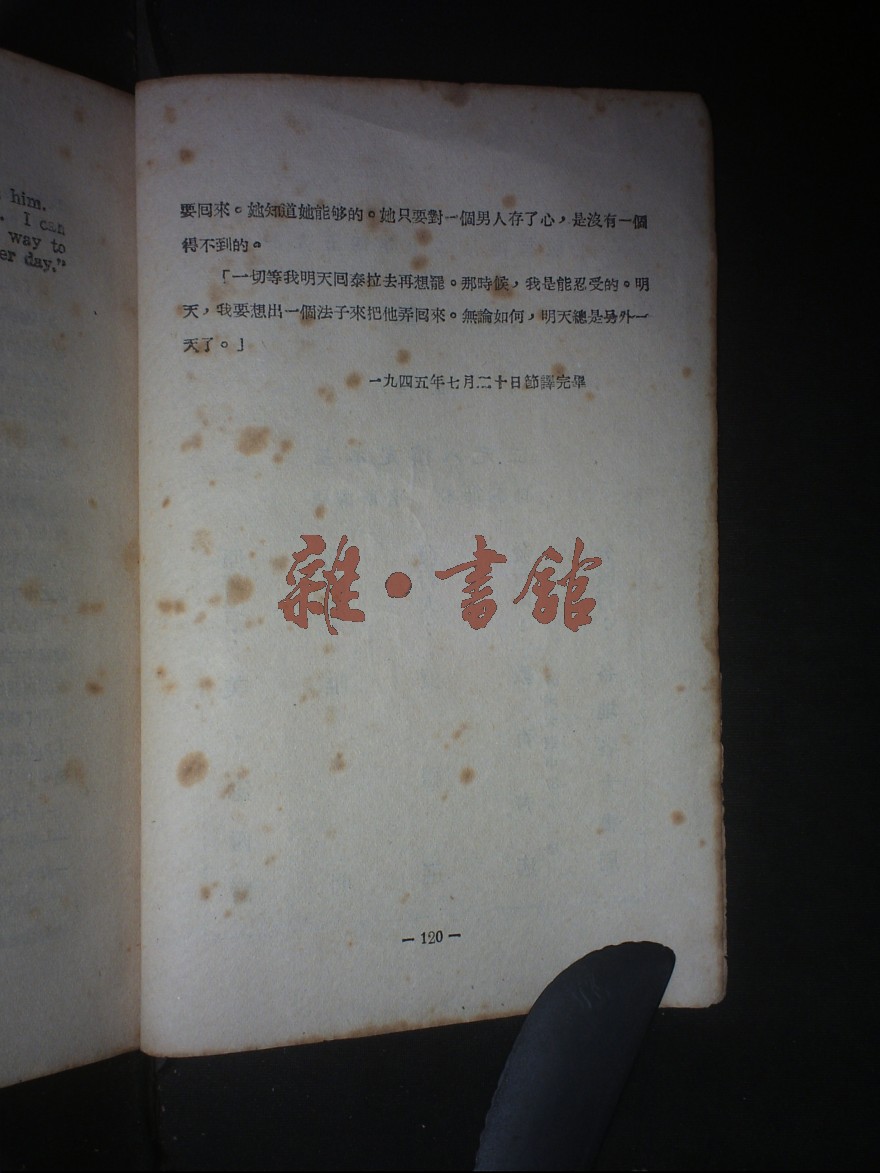 him.
. I can
way to
er day."
要回來。她知道她能够的。她只要對一個男人存了心，是沒有一個
得不到的。
「一切等我明天回泰拉去再想罷。那時候，我是能忍受的。明
天，我要想出一個法子來把他弄回來。無論如何，明天總是另外一
天了。」
一九四五年七月二十日節譯完畢
雜·書館
— 120 —